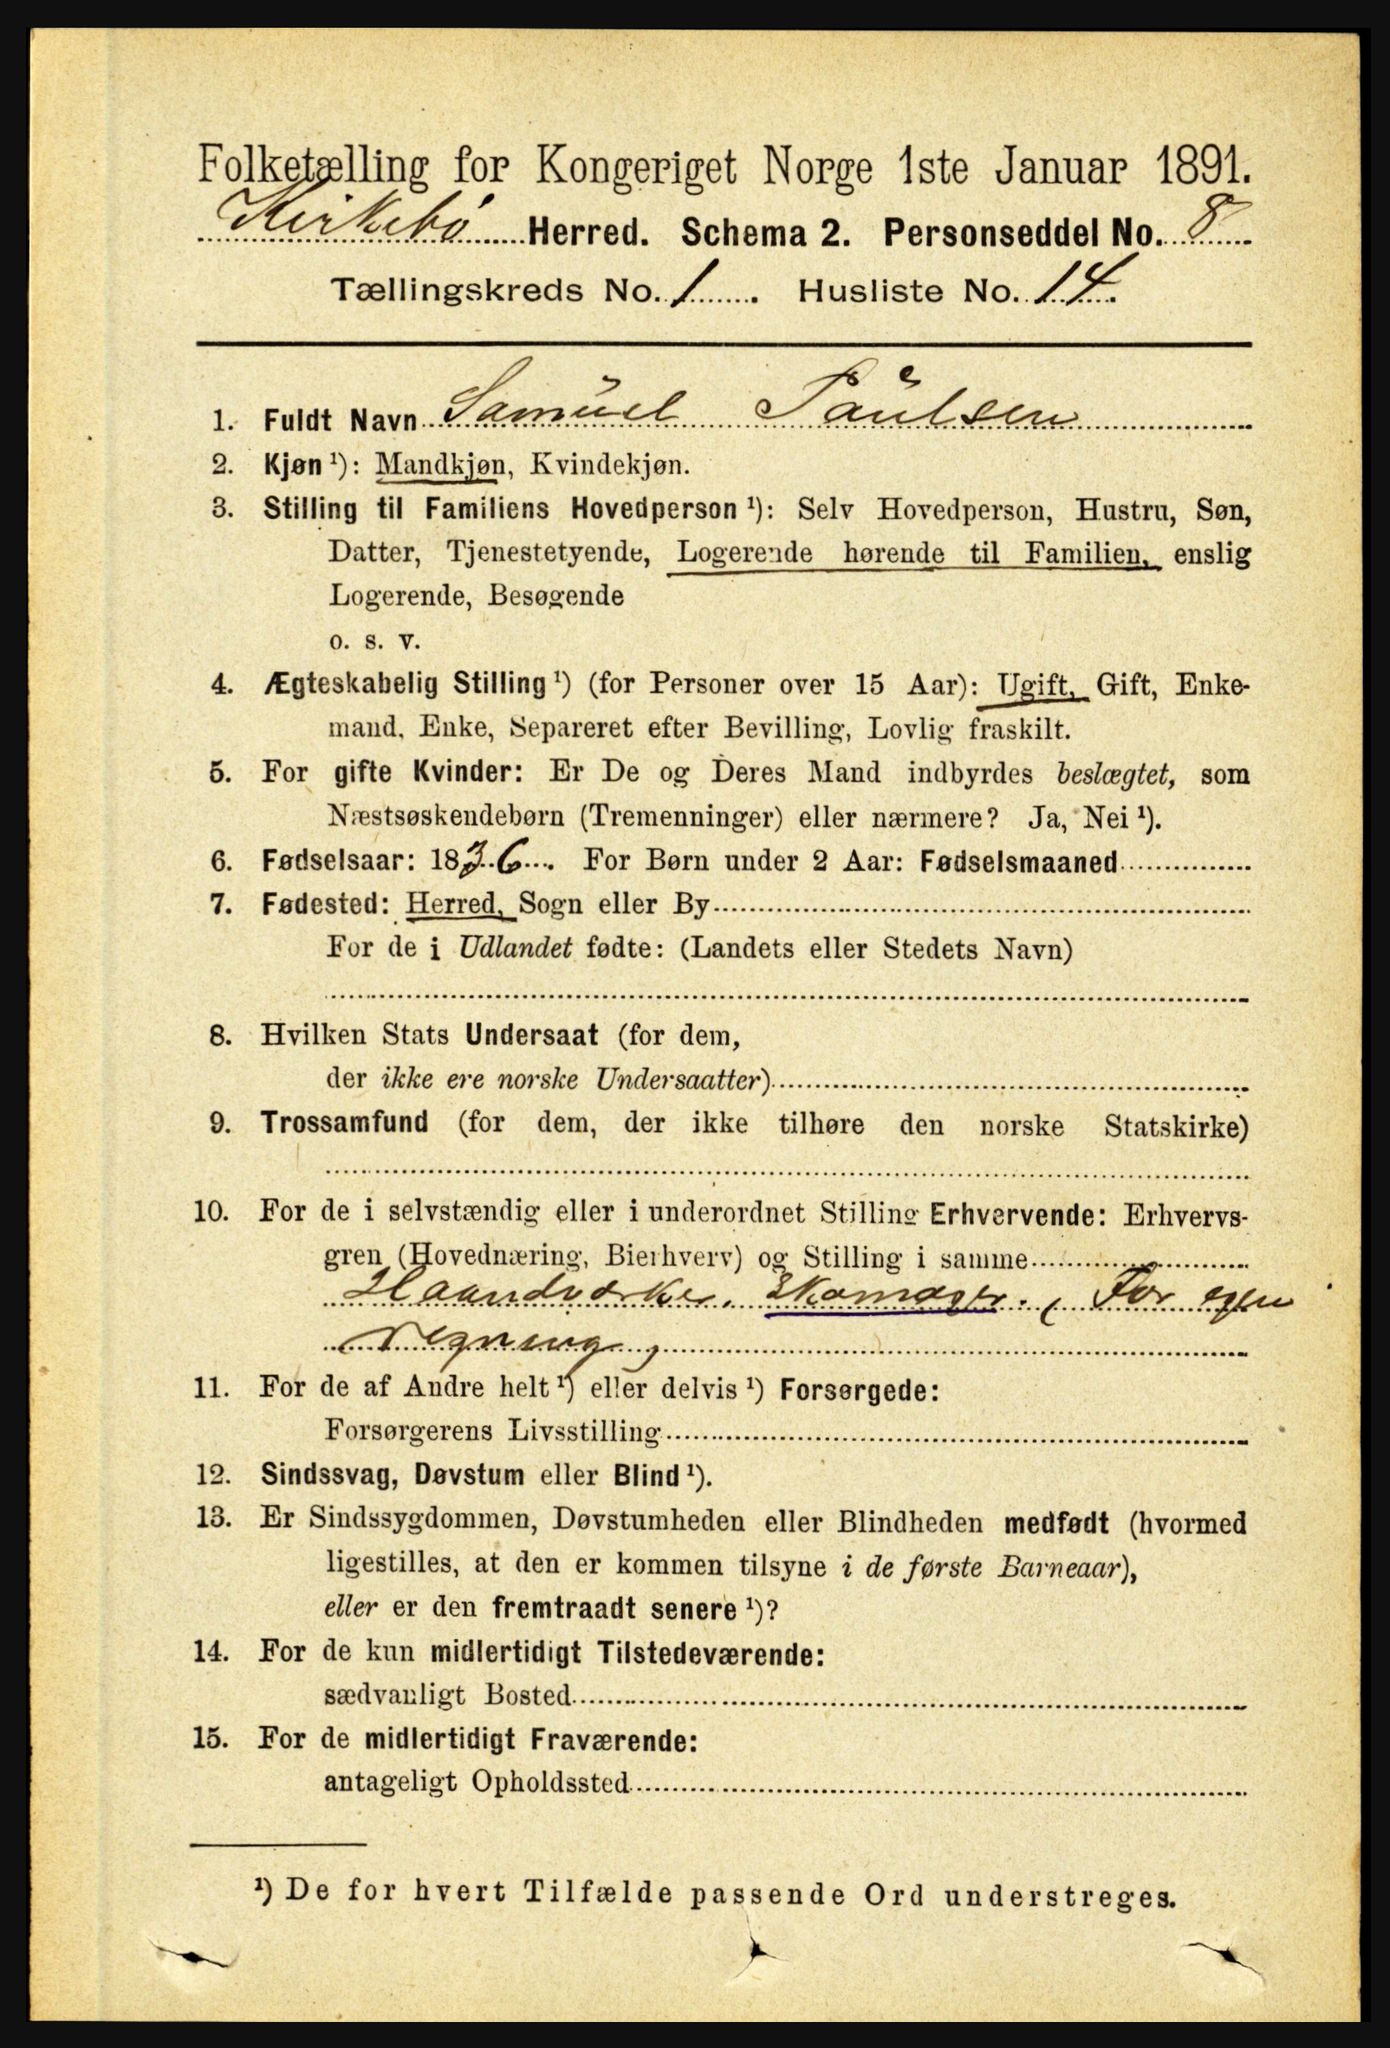 Folketælling for Kongeriget Norge 1ste Januar 1891.
Kirkebø Herred. Schema 2. Personseddel No. 8
Tællingskreds No. 1. Husliste No. 14.
1. Fuldt Navn Samuel Paulsen
2. Kjøn ¹): Mandkjøn, Kvindekjøn.
3. Stilling til Familiens Hovedperson ¹): Selv Hovedperson, Hustru, Søn,
Datter, Tjenestetyende, Logerende hørende til Familien, enslig
Logerende, Besøgende
o. s. v.
4. Ægteskabelig Stilling ¹) (for Personer over 15 Aar): Ugift, Gift, Enke-
mand, Enke, Separeret efter Bevilling, Lovlig fraskilt.
5. For gifte Kvinder: Er De og Deres Mand indbyrdes beslægtet, som
Næstsøskendebørn (Tremenninger) eller nærmere? Ja, Nei ¹).
6. Fødselsaar: 1836. For Børn under 2 Aar: Fødselsmaaned
7. Fødested: Herred, Sogn eller By
For de i Udlandet fødte: (Landets eller Stedets Navn)
8. Hvilken Stats Undersaat (for dem,
der ikke ere norske Undersaatter)
9. Trossamfund (for dem, der ikke tilhøre den norske Statskirke)
10. For de i selvstændig eller i underordnet Stilling Erhvervende: Erhvervs-
gren (Hovednæring, Bierhverv) og Stilling i samme
Haandværker, Skomager. (For egen
regning)
11. For de af Andre helt ¹) eller delvis ¹) Forsørgede:
Forsørgerens Livsstilling
12. Sindssvag, Døvstum eller Blind ¹).
13. Er Sindssygdommen, Døvstumheden eller Blindheden medfødt (hvormed
ligestilles, at den er kommen tilsyne i de første Barneaar),
eller er den fremtraadt senere ¹)?
14. For de kun midlertidigt Tilstedeværende:
sædvanligt Bosted
15. For de midlertidigt Fraværende:
antageligt Opholdssted
¹) De for hvert Tilfælde passende Ord understreges.